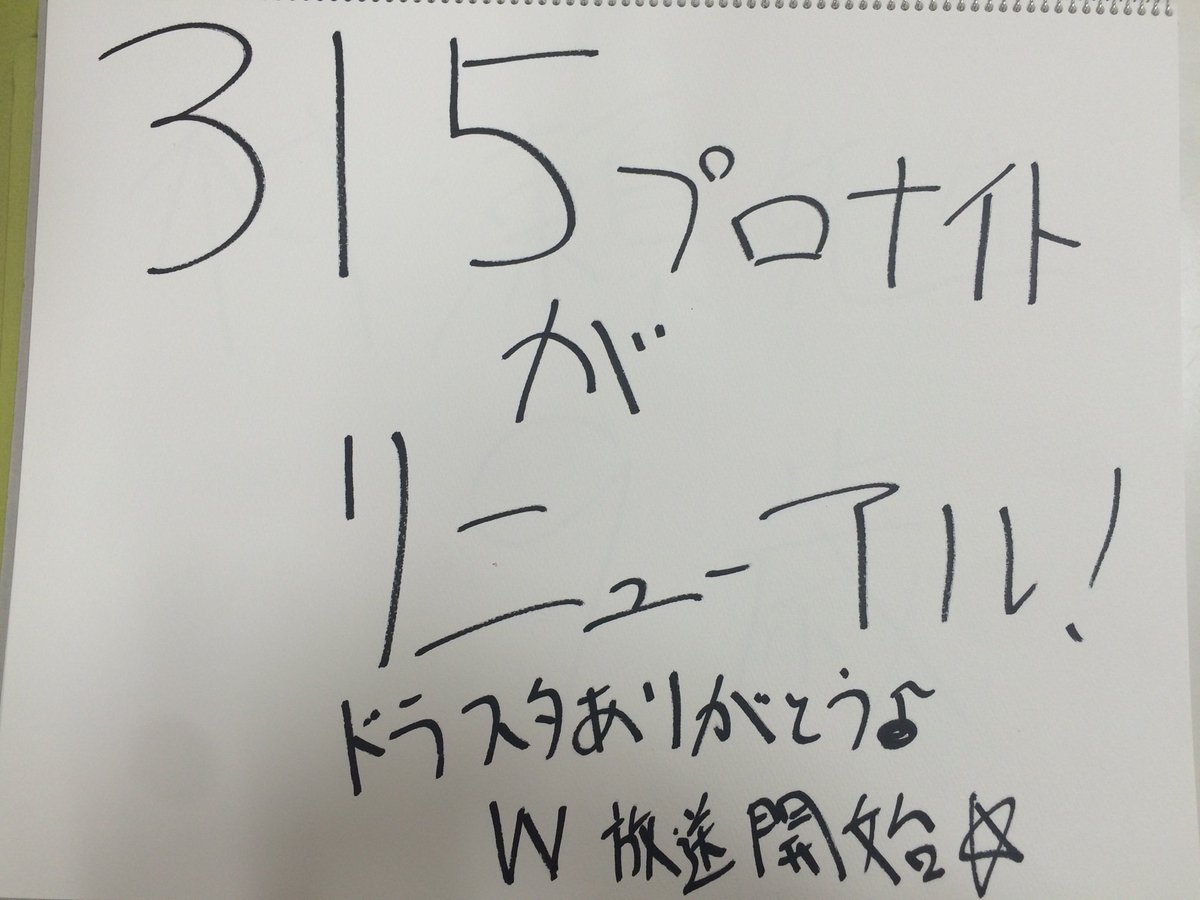 315プロナイト
が
リニューアル!
ドラスタありがとう♪
W放送開始☆